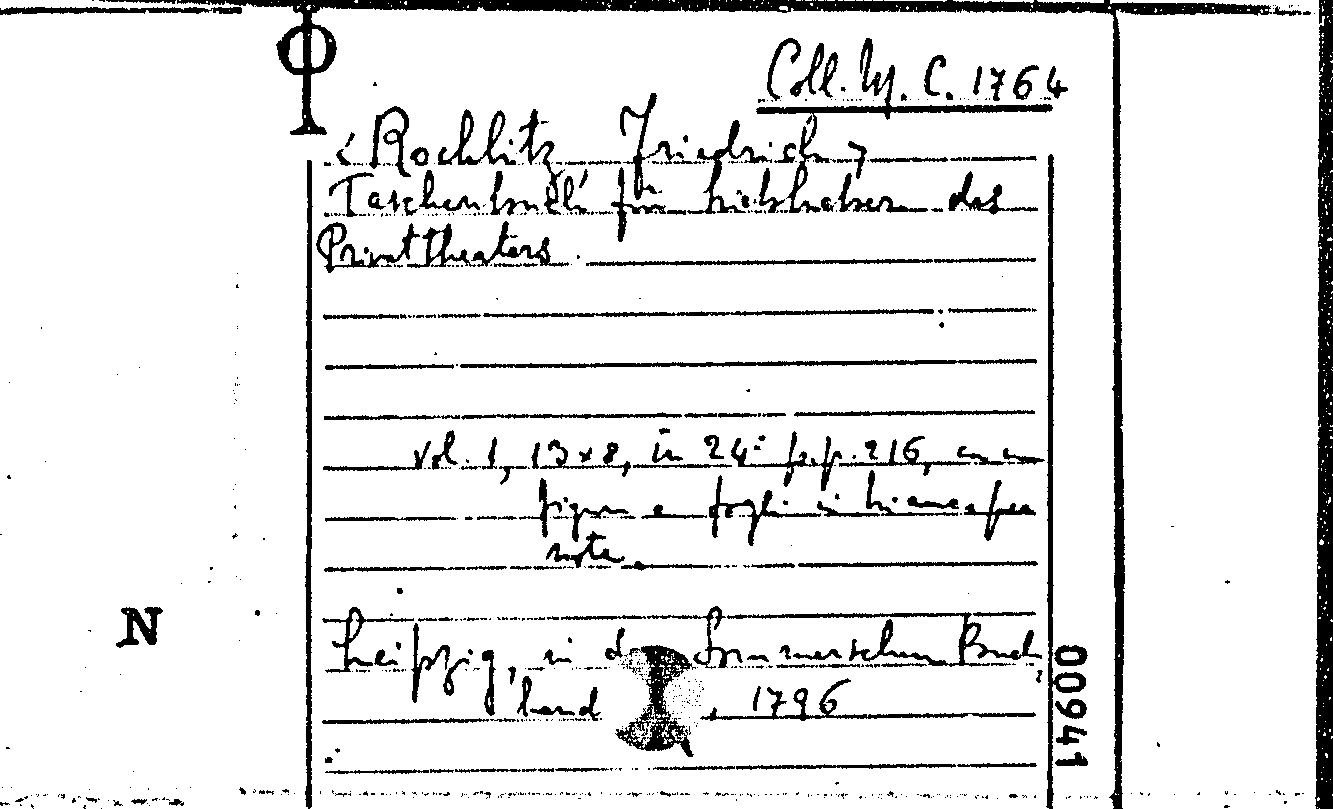 Coll. M. C. 1764
<Rochlitz Friedrich>
Taschenbuch für Liebhaber des
Privattheaters.
vol. 1, 13x8, in 24º p.p. 216, con
figure e fogli in bianco per
note.
Leipzig, in der Sommerschen Buch
hand , 1796
N
00941